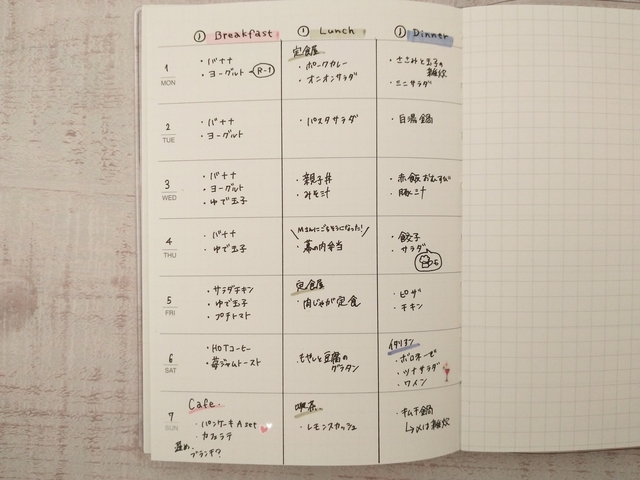 Breakfast
Lunch
Dinner
1
MON
・バナナ
・ヨーグルト R-1
定食屋
・ポークカレー
・オニオンサラダ
・ささみと玉子の
雑炊
・ミニサラダ
2
TUE
・バナナ
・ヨーグルト
・パスタサラダ
・白湯鍋
3
WED
・バナナ
・ヨーグルト
・ゆで玉子
・親子丼
・みそ汁
・赤飯おむすび
・豚汁
4
THU
・バナナ
・ゆで玉子
Mさんにごちそうになった!
・幕の内弁当
・餃子
・サラダ
5
FRI
・サラダチキン
・ゆで玉子
・プチトマト
定食屋
・肉じゃが定食
・ピザ
・チキン
6
SAT
・HOTコーヒー
・苺ジャムトースト
・もやしと豆腐の
グラタン
イタリアン
・ボロネーゼ
・ツナサラダ
・ワイン
7
SUN
Cafe
・パンケーキ A set
・カフェラテ
遅め、
ブランチ?
喫茶
・レモンスカッシュ
・キムチ鍋
↳〆は雑炊